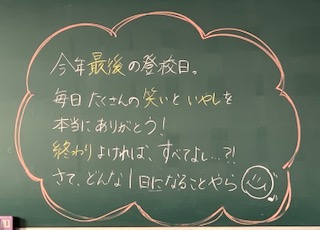 今年最後の登校日。
毎日たくさんの笑いといやしを
本当にありがとう!
終わりよければ、すべてよし…?!
さて、どんな1日になることやら